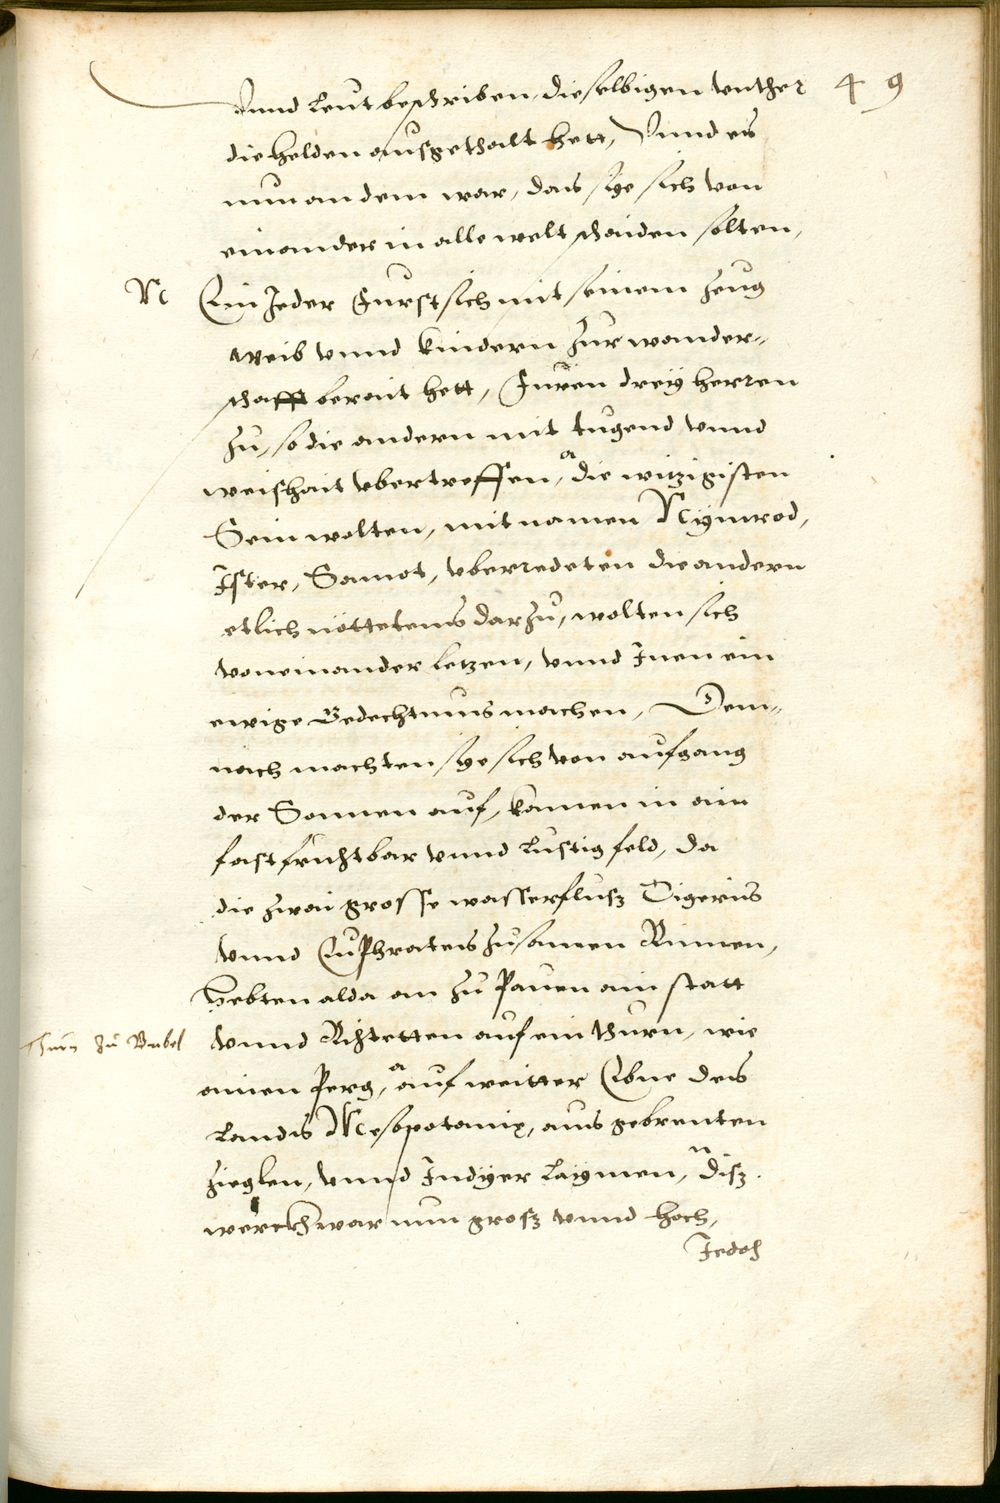 49
Vnnd Leut beschriben, dieselbigen vnther
die helden ausgethailt hett, Vnnd es
nun an dem war, das sye sich von
einander in alle welt schaiden solten,
Ein Jeder Furst sich mit seinem zeug
weib vnnd kindern zur wander„
schafft berait hett, Furen drey herren
zu, so die andern mit tugend vnnd
weishait vbertreffen, die witzigisten
Sein wolten, mit namen Nymrod,
Ister, Samot, vberredeten die andern
etlich nöttetens darzu, wolten sich
voneinander letzen, vnnd Jnen ein
ewige Gedechtnus machen, Dem„
nach machten sye sich von aufgang
der Sonnen auf, kamen in ain
fast fruchtbar vnnd lustig feld, da
die zwai grosse wasserflusz Tigeris
vnnd Euphrates zusamen Rinnen,
Hebten alda an zu Pauen ain statt
Thurn zu Babel
vnnd Richtetten auf ein thurn, wie
ainen Perg, auf weitter Ebne des
Lands Mesopotamie, aus gebrenten
zieglen, vnnd Indyer Laymen, disz
werckh war nun grosz vnnd hoch,
Jedoch